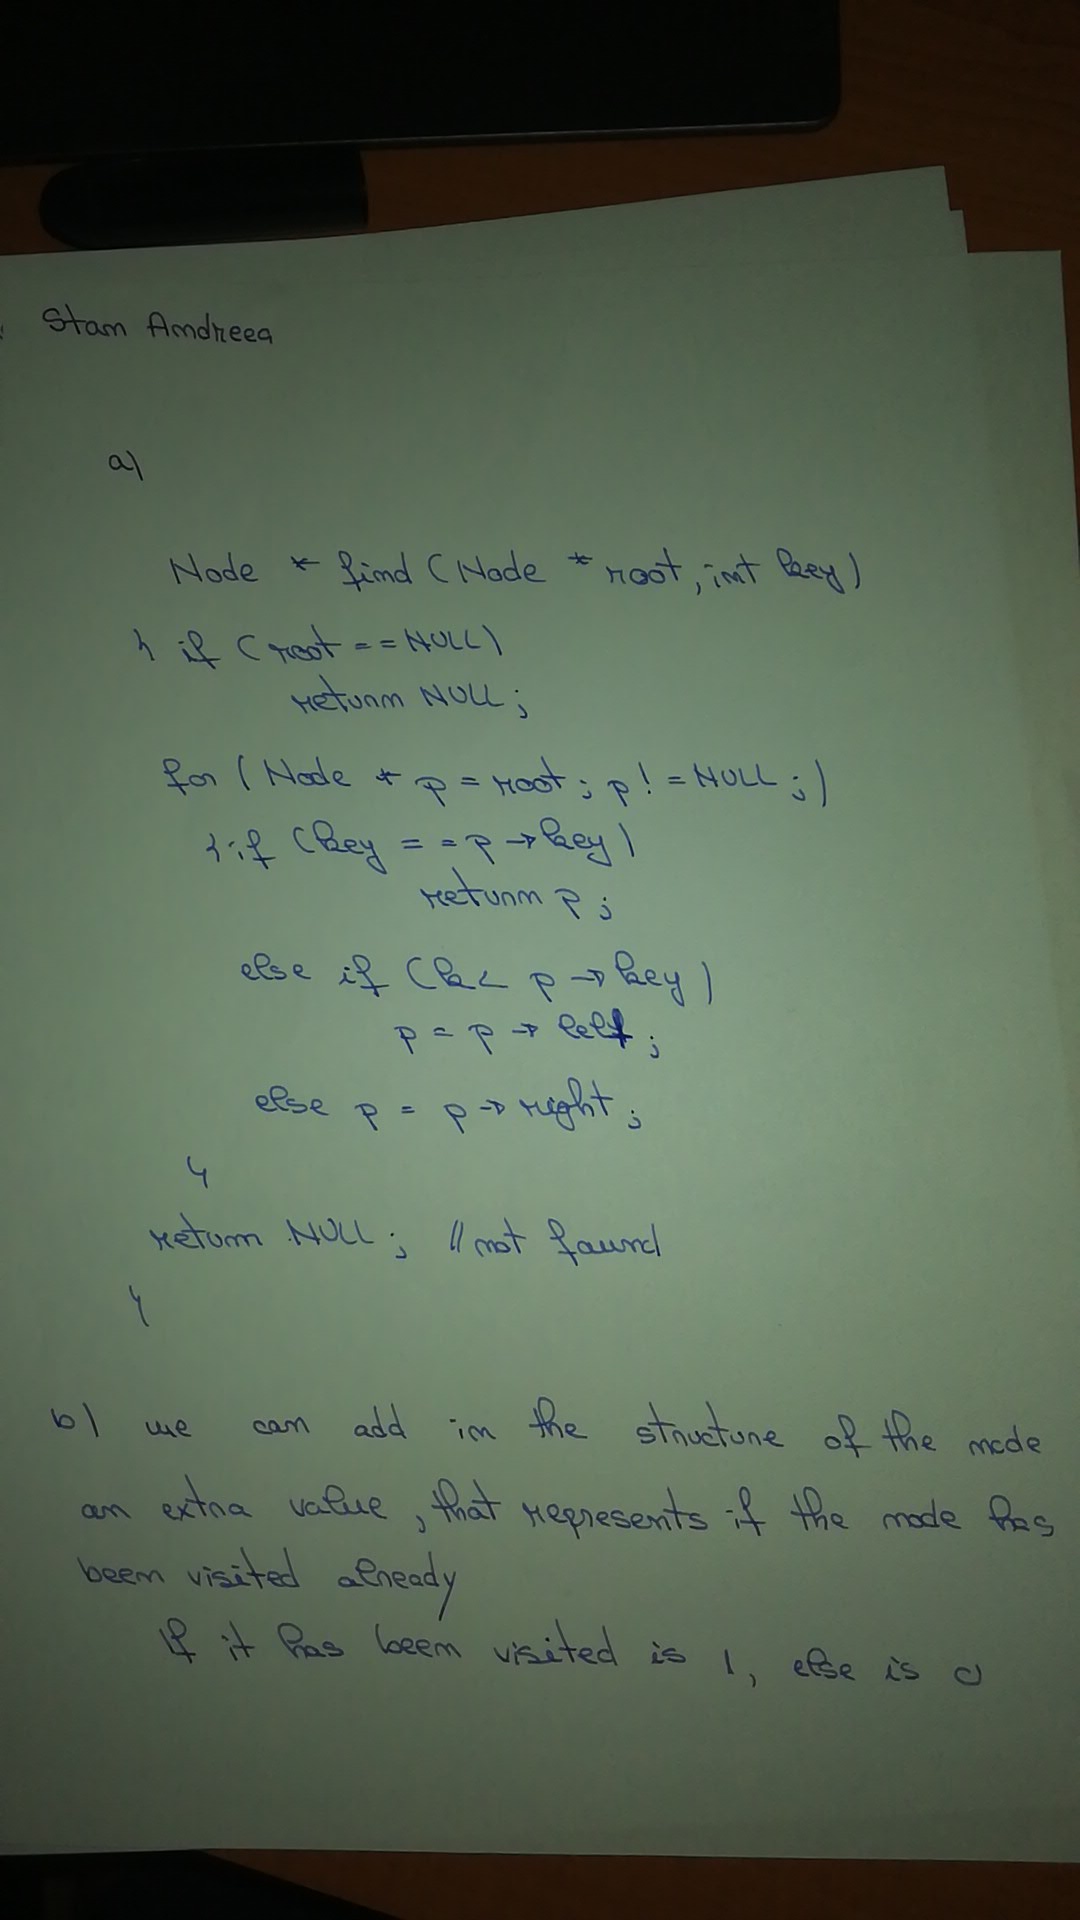 Stan Andreea
a)
Node * find (Node * root, int key)
{ if (root == NULL)
return NULL;
for (Node * p = root; p != NULL;)
{ if (key == p->key)
return p;
else if (k < p->key)
p = p->left;
else p = p->right;
}
return NULL; // not found
}
b) we can add in the structure of the node
an extra value, that represents if the node has
been visited already
If it has been visited is 1, else is 0